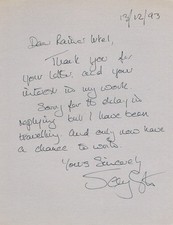 13/12/93
Dear
Thank you for
your letter, and your
interest in my work.
Sorry for to delay in
replying but I have been
travelling. And only now have
a chance to write.
Yours Sincerely